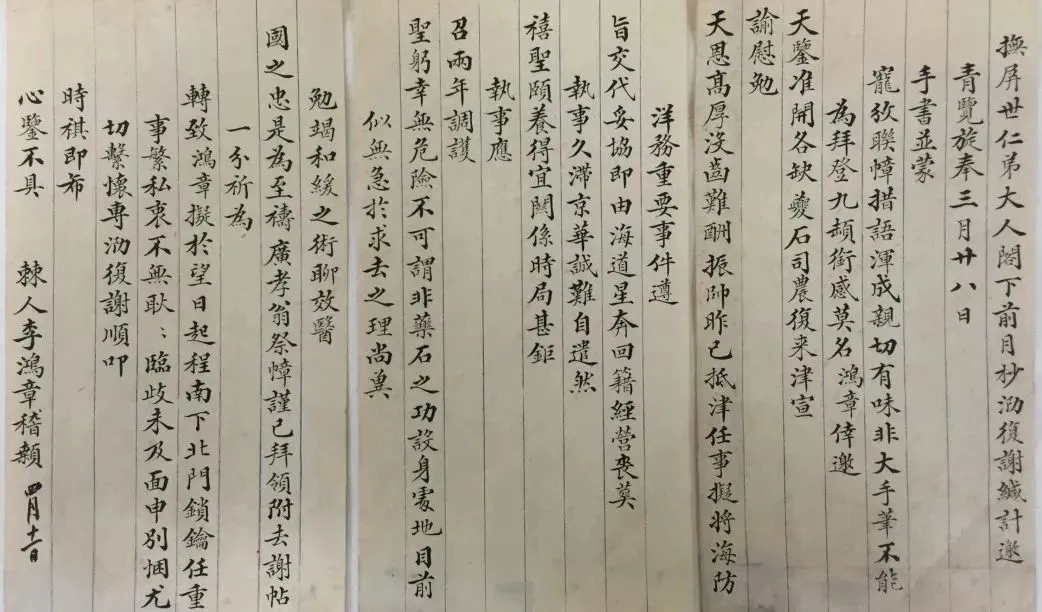 撫屏世仁弟大人閣下前月杪泐復謝緘計邀
青覽旋奉三月廿八日
手書並蒙
寵頒聯幛措語渾成親切有味非大手筆不能
為拜登九頓銜感莫名鴻章倖邀
天鑒准開各缺夔石司農復来津宣
諭慰勉
天恩高厚沒齒難酬振帥昨已抵津任事擬將海防
洋務重要事件遵
旨交代妥協即由海道星奔回籍經營喪葬
執事久滯京華誠難自遣然
禧聖頤養得宜關係時局甚鉅
執事應
召兩年調護
聖躬幸無危險不可謂非藥石之功設身處地目前
似無急於求去之理尚冀
勉竭和緩之術聊效醫
國之忠是為至禱廣孝翁祭幛謹已拜領附去謝帖
一分祈為
轉致鴻章擬於望日起程南下北門鎖鑰任重
事繁私衷不無耿：臨歧未及面申別悃尤
切繫懷專泐復謝順叩
時祺即希
心鑒不具 棘人李鴻章稽顙 四月十一日